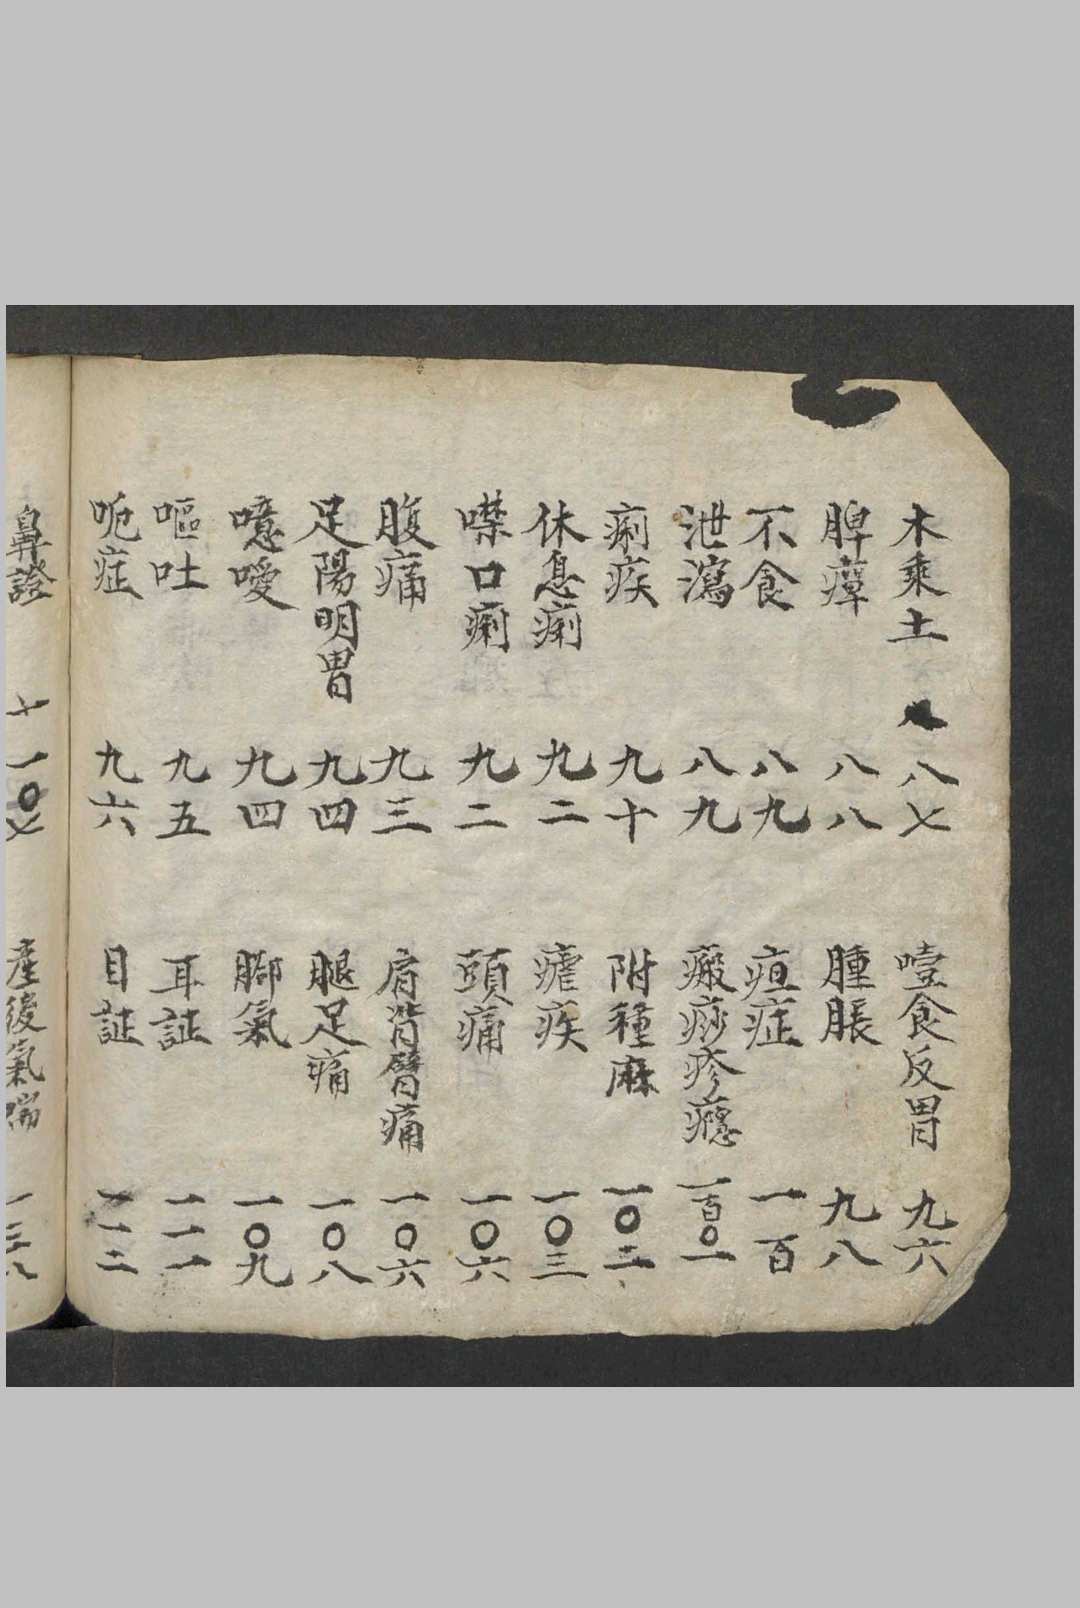 木乘土 八七
脾癉 八八
不食 八九
泄瀉 八九
痢疾 九十
休息痢 九二
噤口痢 九二
腹痛 九三
足陽明胃 九四
噫噯 九四
嘔吐 九五
呃症 九六
噎食反胃 九六
腫脹 九八
疸症 一百
瘢痧疹癮 一百〇一
附種麻 一〇三
瘧疾 一〇三
頭痛 一〇六
肩背臂痛 一〇六
腿足痛 一〇八
腳氣 一〇九
耳証 一一一
目証 一一二
鼻證 一〇七
產後氣喘 一三八